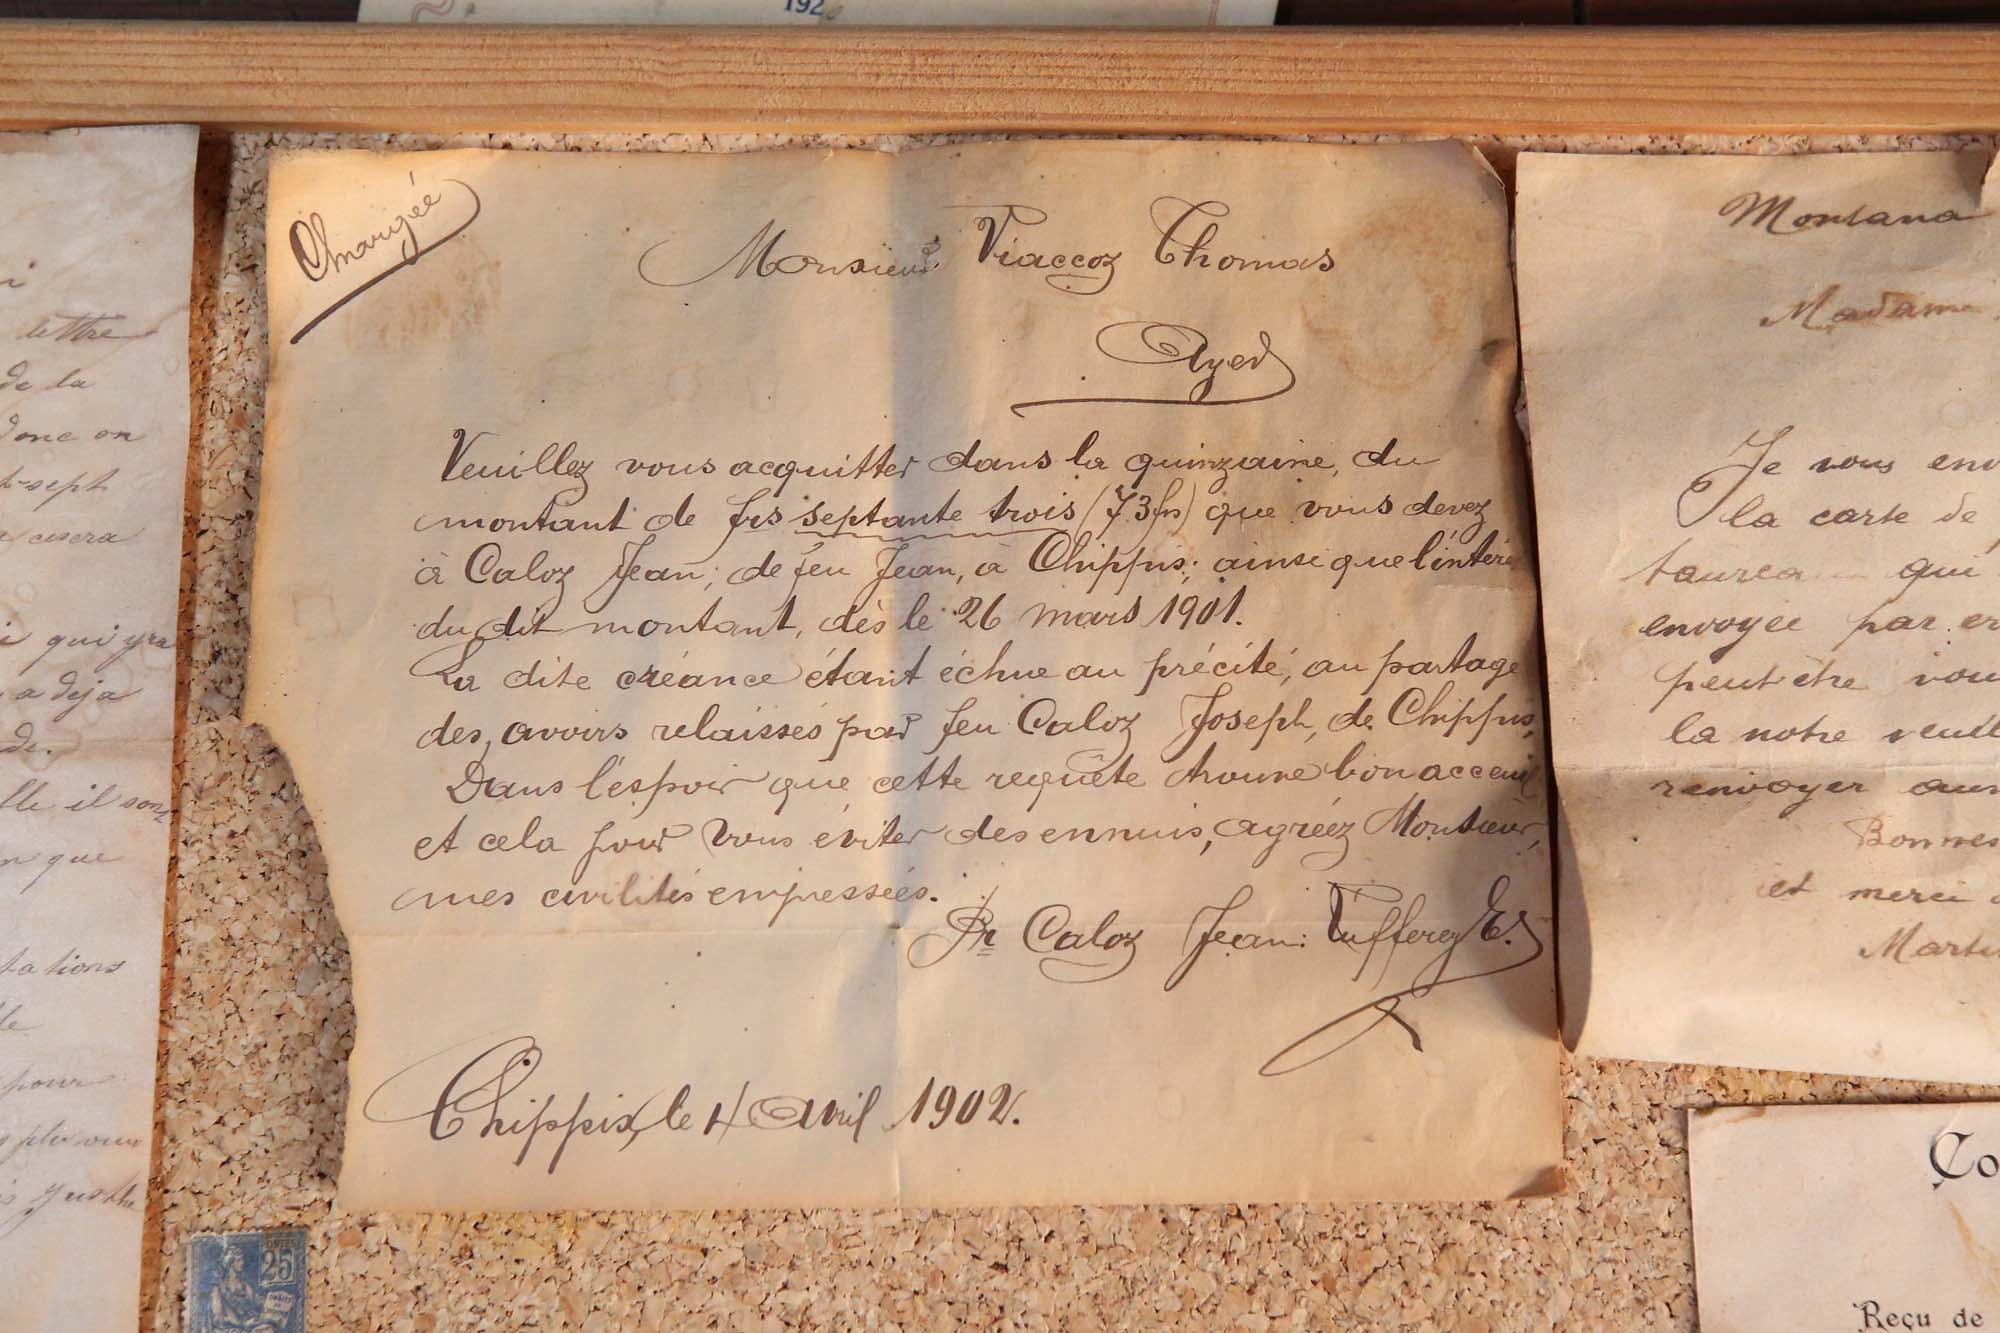 192
lettre
de la
donc on
-sept
i qui ira
a deja
de.
lle il sont
n que
tations
le
pour
Chargée
Monsieur Viaccoz Thomas
Ayer
Veuillez vous acquitter dans la quinzaine, du
montant de frs septante trois (73 frs) que vous devez
à Caloz Jean; de feu Jean, à Chippis; ainsi que l'intérê
du dit montant, dès le 26 mars 1901.
La dite créance étant échue au précité, au partage
des avoirs relaissés par feu Caloz Joseph, de Chippis,
Dans l'espoir que cette requête trouve bon acceuil
et cela pour vous éviter des ennuis, agréez Monsieur,
mes civilités empressées.
Pr Caloz Jean: Tufferey E.
Chippis, le 4 Avril 1902.
25
Montana
Madame
Je vous env
la carte de
taurea qui
envoyée par er
peut être vou
la notre veuill
renvoyer aus
Bonnes
et merci
Marti
Co
Reçu de